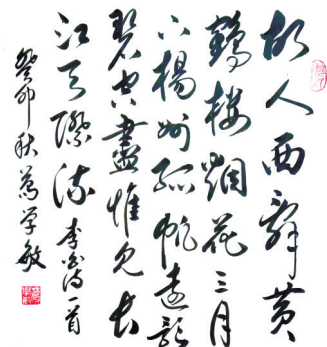 故人西辞黄
鹤楼烟花三月
下杨州孤帆远影
碧空尽惟见长
江天际流 李白诗一首
癸卯秋 万学敏